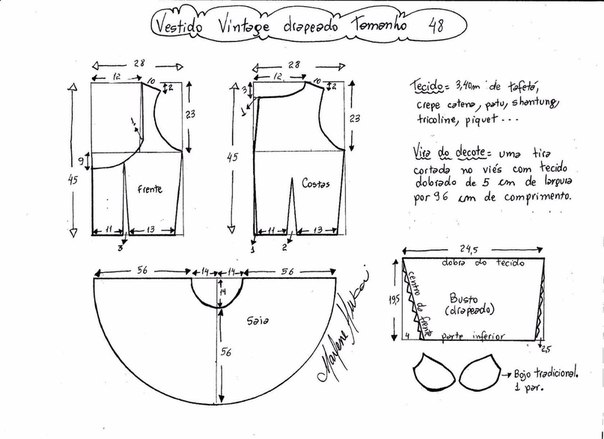 Vestido Vintage drapeado Tamanho 48
28
12
10
2
23
9
45
1
Frente
11
13
3
28
12
10
3
2
1
23
45
Costas
11
13
1
2
Tecido = 3,40m de tafetá,
crepe catena, patu, shantung,
tricoline, piquet ...
Vira do decote = uma tira
cortada no viés com tecido
dobrado de 5 cm de largura
por 96 cm de comprimento.
56
14
14
56
14
Saia
56
Marlene Mukai
24,5
dobra do tecido
19,5
centro da frente
Busto
(drapeado)
4
parte inferior
2,5
Bojo tradicional.
1 par.